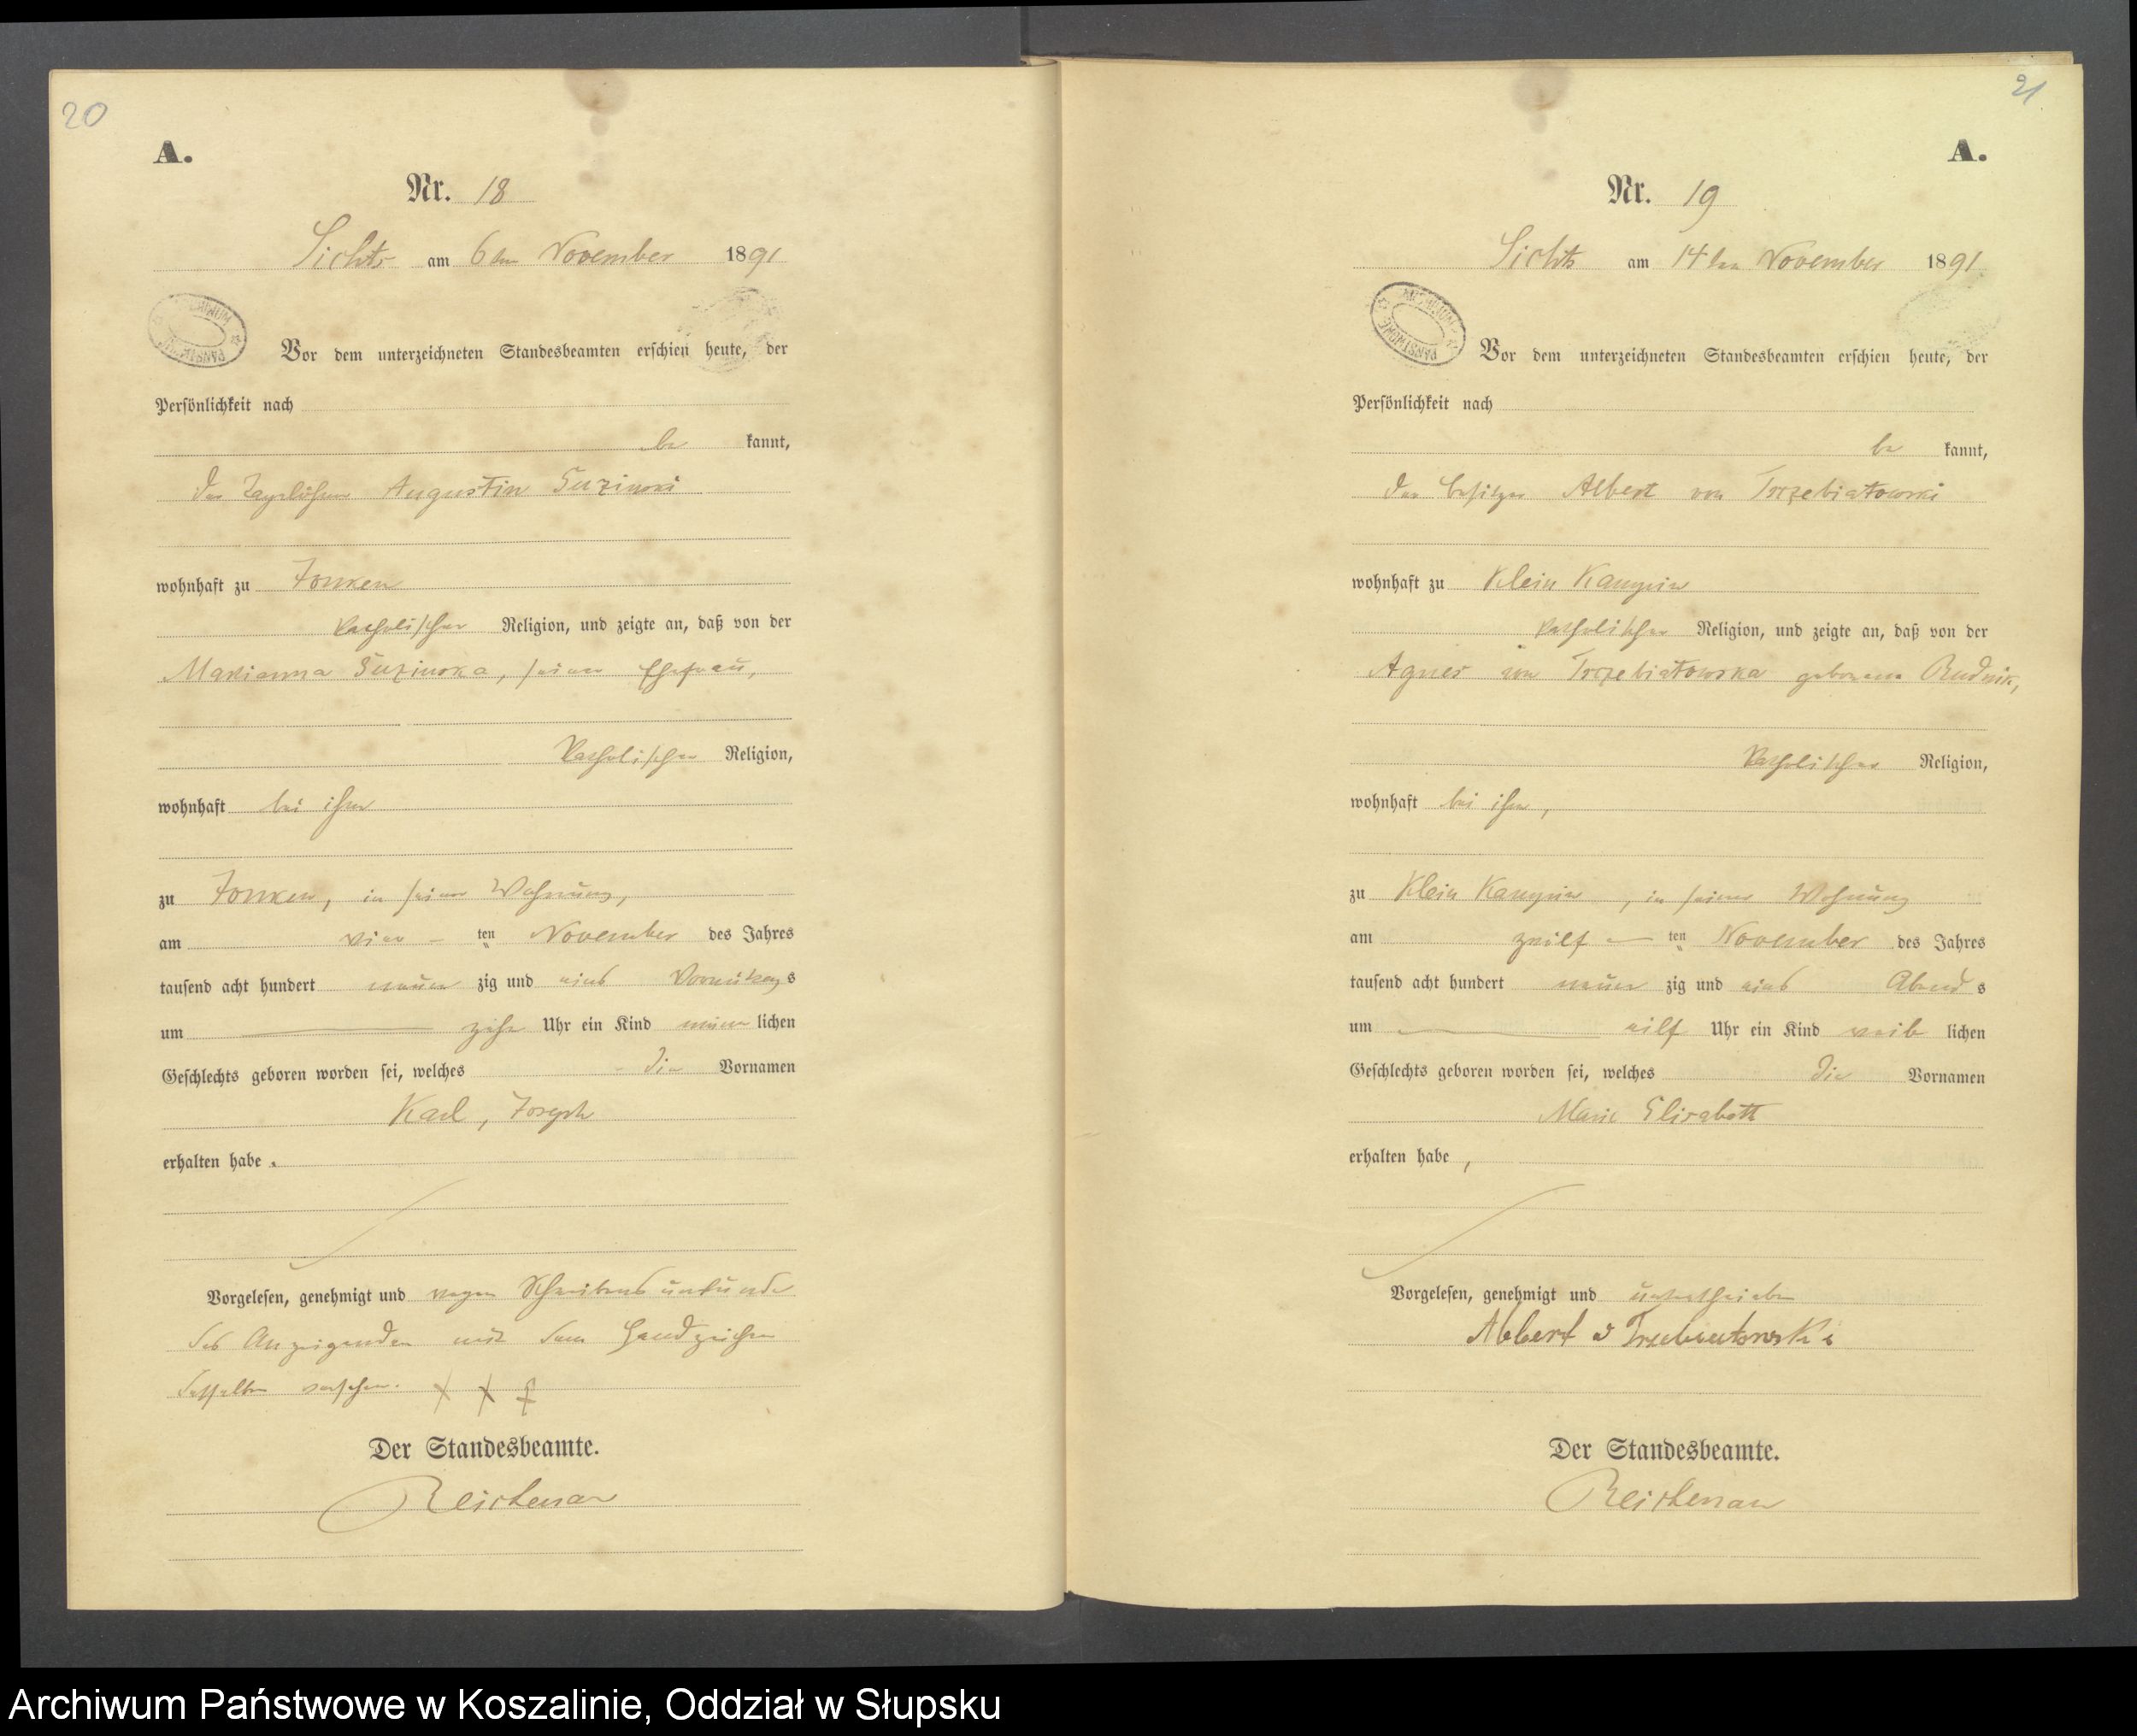 20
A.
Nr. 18
Lichts am 6ten November 1891
Vor dem unterzeichneten Standesbeamten erschien heute, der
Persönlichkeit nach
be kannt,
der Tagelöhner Augustin
wohnhaft zu Jonken
katholischer Religion, und zeigte an, daß von der
Marianna seiner Ehefrau,
katholischer Religion,
wohnhaft bei ihm
zu Jonken, in seiner Wohnung,
am vier ten November des Jahres
tausend acht hundert neun zig und eins Vormittags
um zehn Uhr ein Kind männ lichen
Geschlechts geboren worden sei, welches die Vornamen
Karl, Joseph
erhalten habe.
Vorgelesen, genehmigt und wegen Schreibensunkunde
des Anzeigenden mit dem Handzeichen
desselben versehen. X X
Der Standesbeamte.
Reichenau
21
A.
Nr. 19
Lichts am 14ten November 1891
PAŃSTWOWE
Vor dem unterzeichneten Standesbeamten erschien heute, der
Persönlichkeit nach
be kannt,
der Besitzer Albert von Trzebiatowski
wohnhaft zu Klein
katholischer Religion, und zeigte an, daß von der
Agnes von Trzebiatowska geborene Rudnik,
katholischer Religion,
wohnhaft bei ihm,
zu Klein , in seiner Wohnung
am zwölf ten November des Jahres
tausend acht hundert neun zig und eins Abend s
um elf Uhr ein Kind weib lichen
Geschlechts geboren worden sei, welches die Vornamen
Marie Elisabeth
erhalten habe,
Vorgelesen, genehmigt und unterschrieben
Albert v
Der Standesbeamte.
Reichenau
Archiwum Państwowe w Koszalinie, Oddział w Słupsku